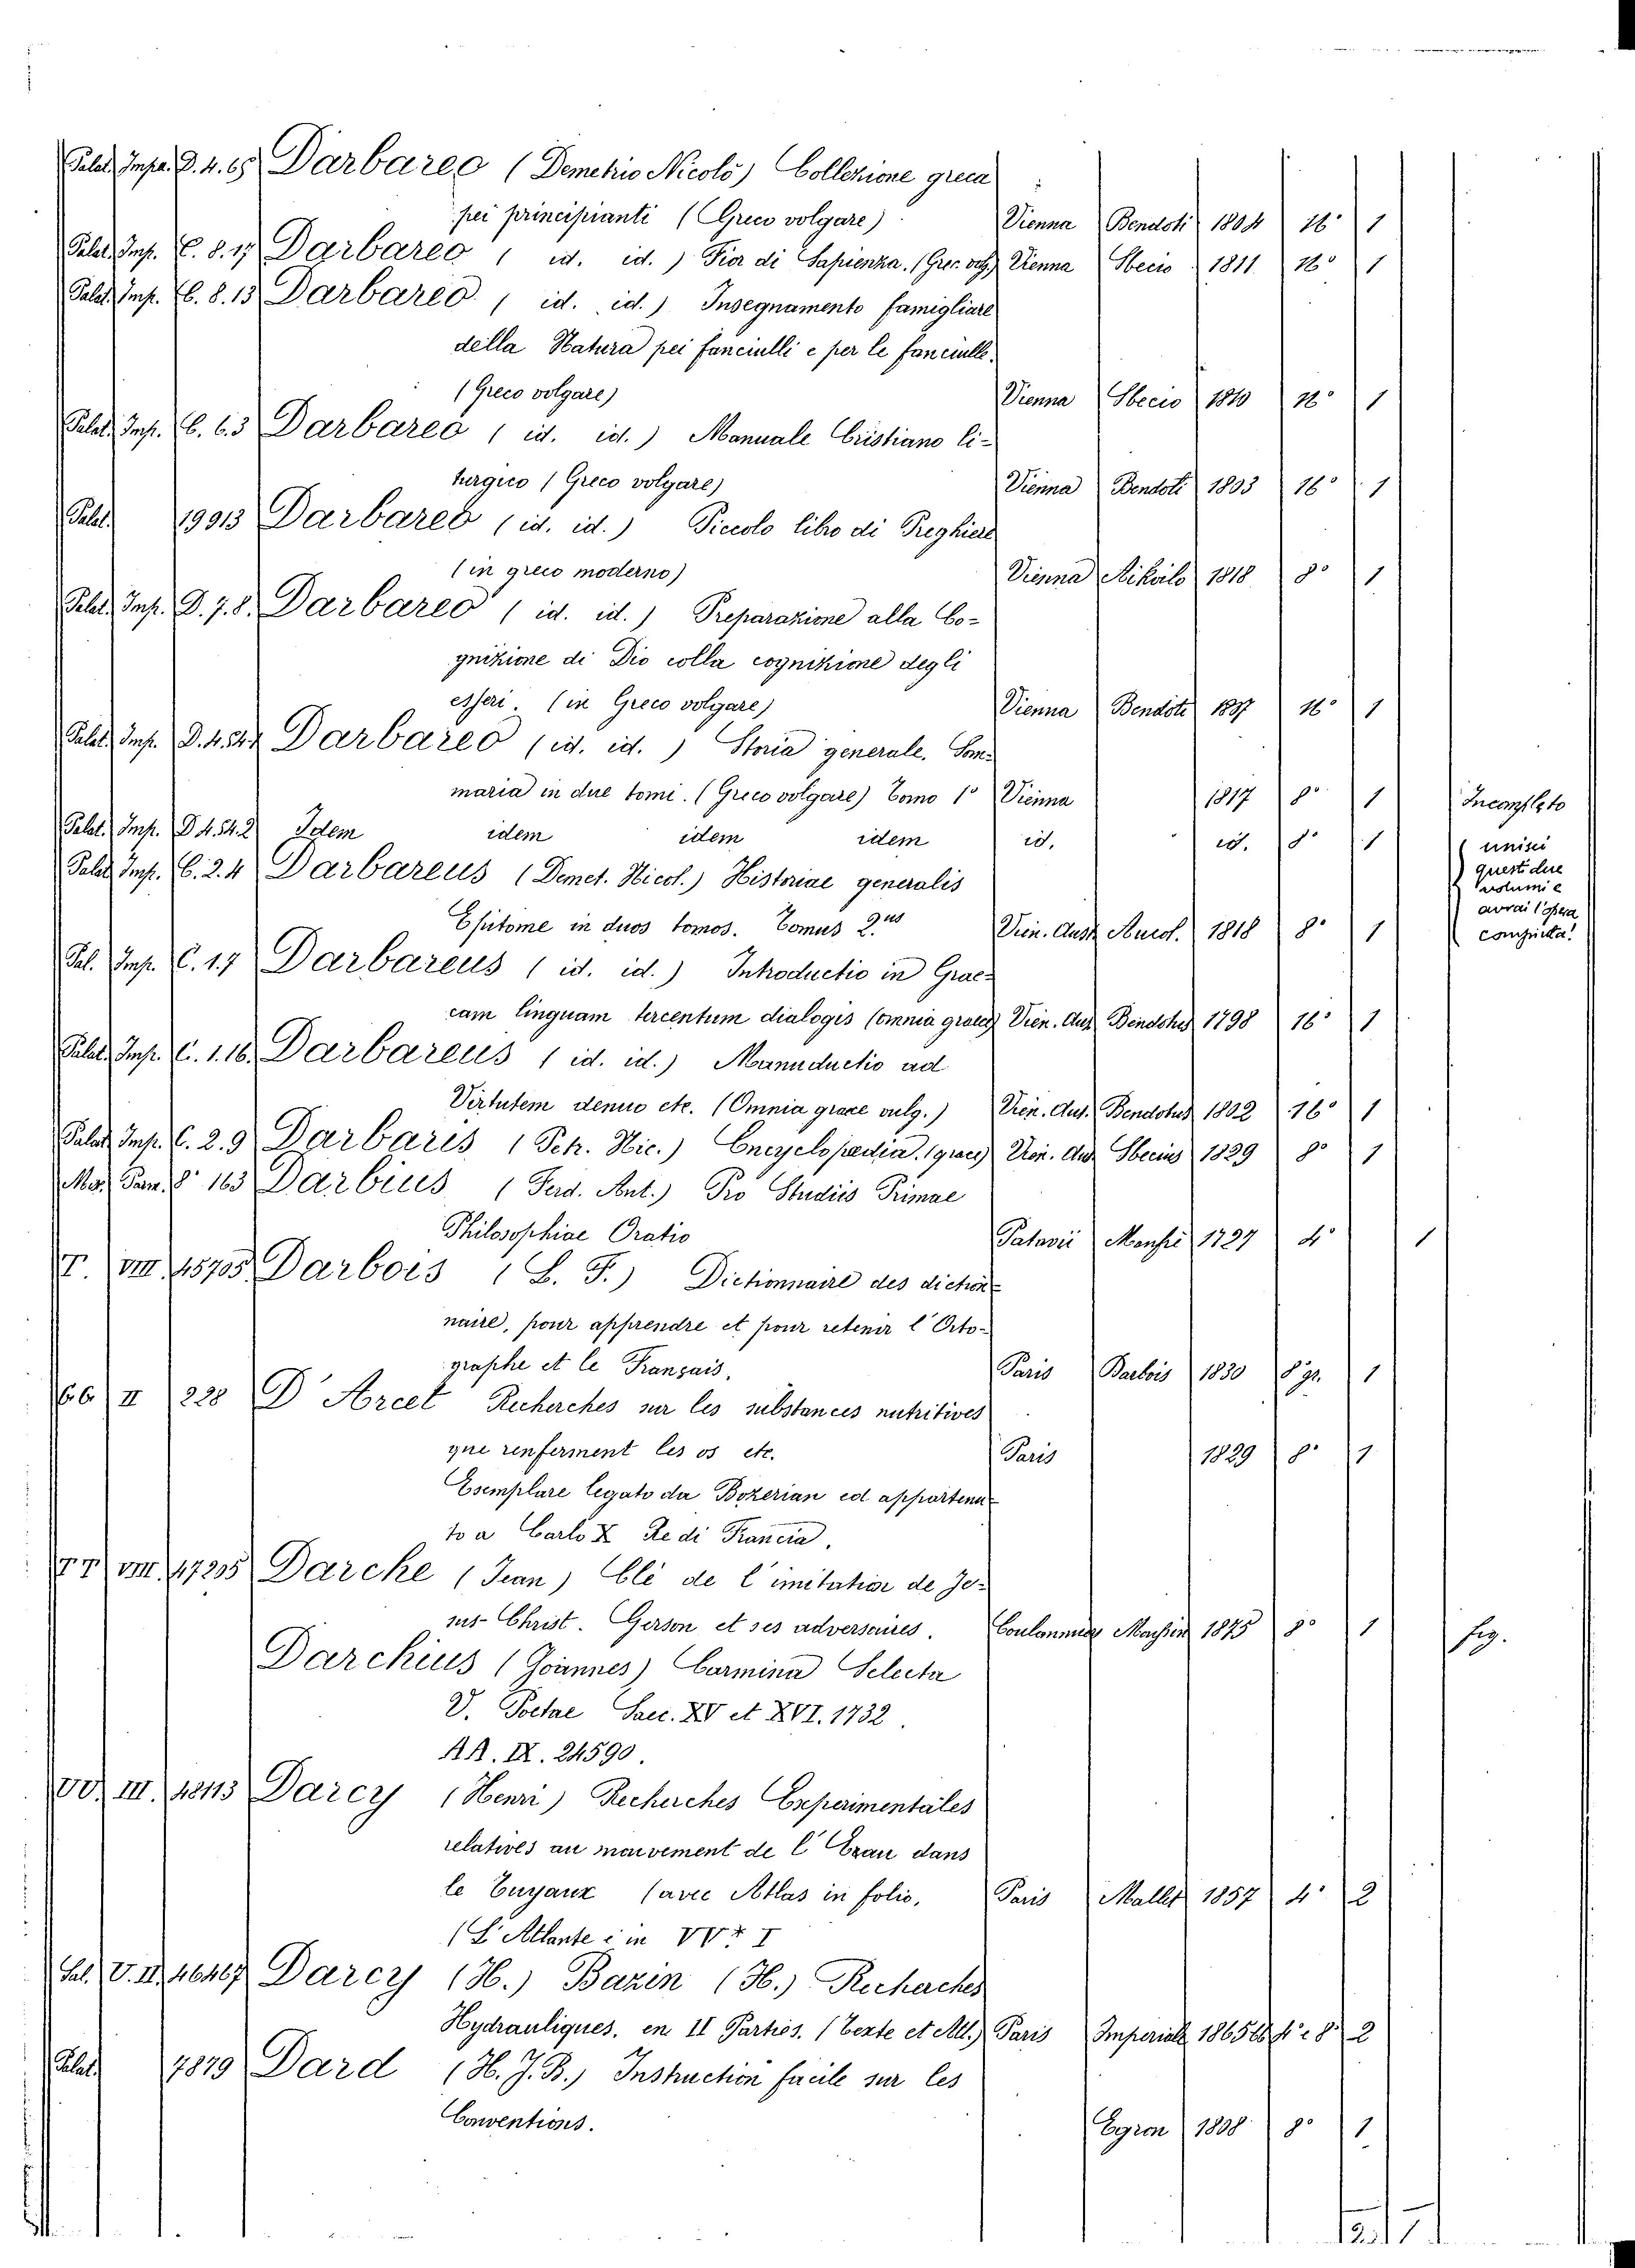 Palat. Impr. D. 4. 65 Darbareo (Demetrio Nicolò) Collezione greca
pei principianti (Greco volgare) Vienna Bendoti 1804 16° 1
Palat. Imp. C. 8. 17 Darbareo (id. id.) Fior di Sapienza. (Grec. volg.) Vienna Sbecio 1811 16° 1
Palat. Imp. C. 8. 13 Darbareo (id. id.) Insegnamento famigliare
della Natura pei fanciulli e per le fanciulle.
(Greco volgare) Vienna Sbecio 1810 12° 1
Palat. Imp. C. 6. 3 Darbareo (id. id.) Manuale Cristiano li-
turgico (Greco volgare) Vienna Bendoti 1803 16° 1
Palat. 19913 Darbareo (id. id.) Piccolo libro di Preghiere
(in greco moderno) Vienna 1818 8° 1
Palat. Imp. D. 7. 8. Darbareo (id. id.) Preparazione alla Co-
gnizione di Dio colla cognizione degli
esseri. (in Greco volgare) Vienna Bendoti 1807 16° 1
Palat. Imp. Darbareo (id. id.) Storia generale. Som-
maria in due tomi. (Greco volgare) Tomo 1° Vienna 1817 8° 1 Incompleto
Palat. Imp. D. 4. 54. 2 Idem idem idem idem id. id. 8° 1 unisci
questi due
volumi e
avrai l'opera
compiuta!
Palat. Imp. C. 2. 4 Darbareus (Demet. Nicol.) Historiae generalis
Epitome in duos tomos. Tomus 2.us Vien. Aust. 1818 8° 1
Pal. Imp. C. 1. 7 Darbareus (id. id.) Introductio in Grae-
cam linguam tercentum dialogis (omnia graece) Vien. Aus. Bendotus 1798 16° 1
Palat. Imp. C. 1. 16. Darbareus (id. id.) Manuductio ad
Virtutem denuo etc. (Omnia graece vulg.) Vien. Aus. Bendotus 1802 16° 1
Palat. Imp. C. 2. 9 Darbaris (Petr. Nic.) Encyclopaedia. (graece) Vien. Aus. Sbecius 1829 8° 1
Mis. Pam. 8° 163 Darbius (Ferd. Ant.) Pro Studiis Primae
Philosophiae Oratio Patavii Manfrè 1727 4° 1
T. VIII. 45705 Darbois (L. F.) Dictionnaire des diction-
naire, pour apprendre et pour retenir l'Orto-
graphe et le Français. Paris Barbois 1830 8° gr. 1
66 II 228 D'Arcet Recherches sur les substances nutritives
que renferment les os etc. Paris 1829 8° 1
Esemplare legato da Bozerian ed appartenu-
to a Carlo X Re di Francia.
TT VIII. 47205 Darche (Jean) Clé de l'imitation de Je-
sus-Christ. Gerson et ses adversaires. 1875 8° 1 fig.
Darchius (Joannes) Carmina Selecta
V. Poetae Saec. XV et XVI. 1732.
AA. IX. 24590.
VV. III. 48113 Darcy (Henri) Recherches Experimentales
relatives au mouvement de l'Eau dans
le Tuyaux (avec Atlas in folio. Paris Mallet 1857 4° 2
(L'Atlante è in VV* I
Sal. V. II. 46467 Darcy (H.) Bazin (H.) Recherches
Hydrauliques. en II Parties. (Texte et Atl.) Paris Imperiale 1865 4° e 8° 2
Palat. 7879 Dard (H. J. B.) Instruction facile sur les
Conventions. Egron 1808 8° 1